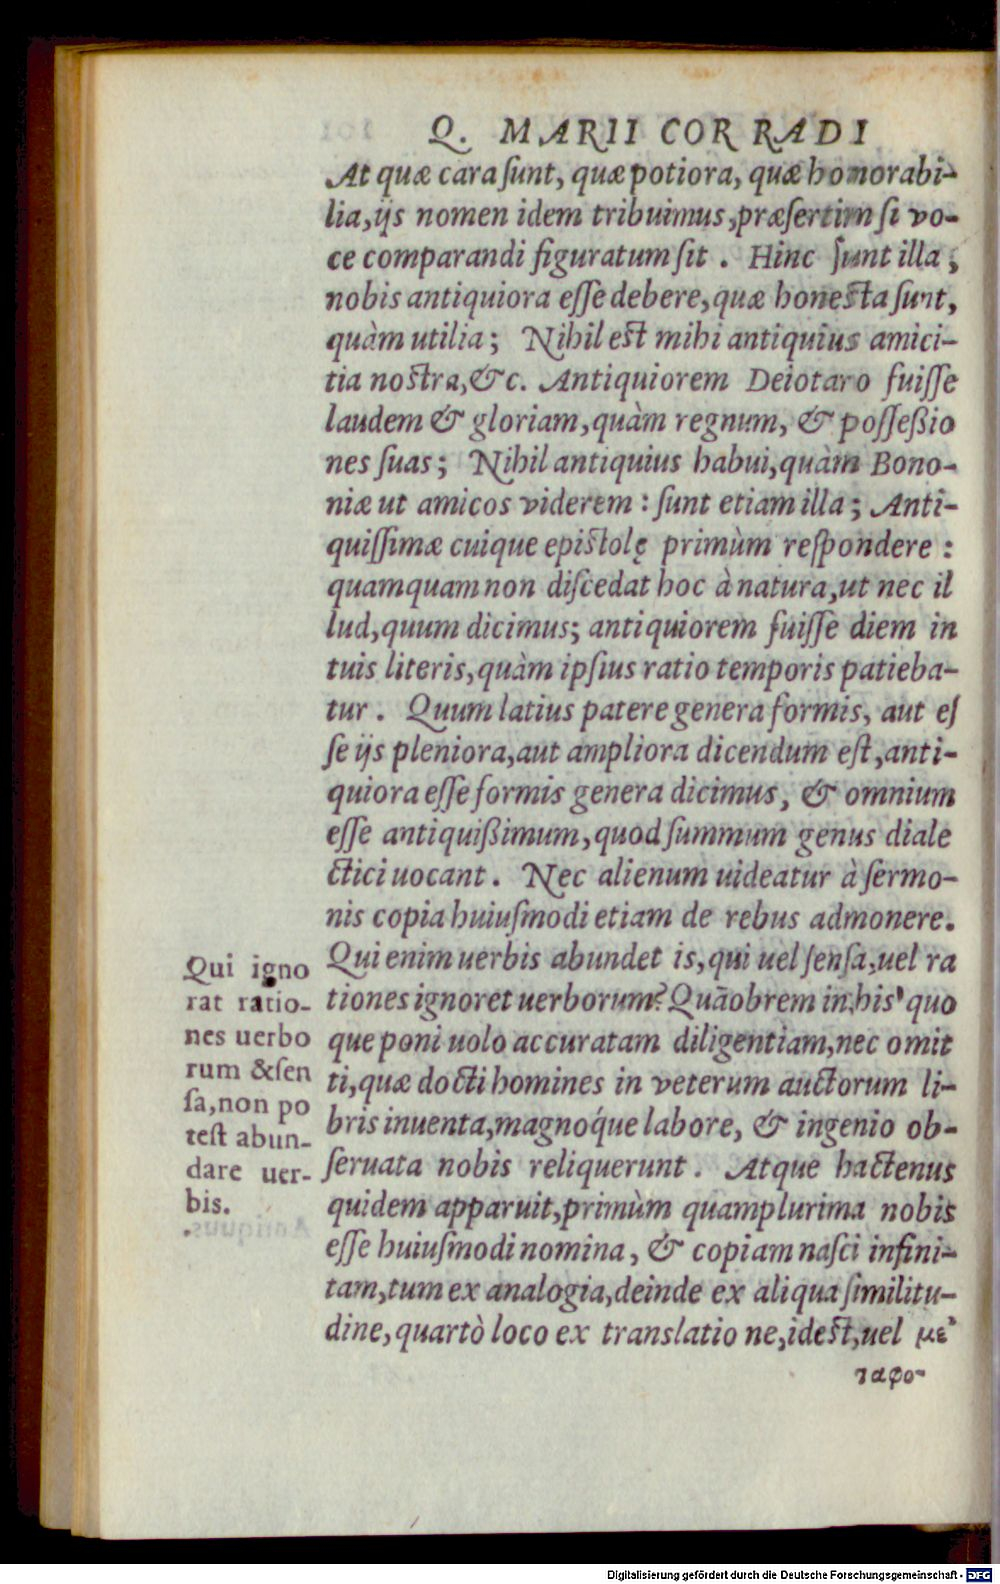 Q. MARII CORRADI
At quæ cara ſunt, quæ potiora, quæ honorabi-
lia, ijs nomen idem tribuimus, præſertim ſi vo-
ce comparandi figuratum ſit . Hinc ſunt illa ;
nobis antiquiora eſſe debere, quæ honeſta ſunt,
quàm utilia ; Nihil eſt mihi antiquius amici-
tia noſtra, &c. Antiquiorem Deiotaro fuiſſe
laudem & gloriam, quàm regnum, & poſſeßio
nes ſuas ; Nihil antiquius habui, quàm Bono-
niæ ut amicos viderem : ſunt etiam illa ; Anti-
quiſſimæ cuique epiſtolę primùm reſpondere :
quamquam non diſcedat hoc à natura, ut nec il
lud, quum dicimus; antiquiorem fuiſſe diem in
tuis literis, quàm ipſius ratio temporis patieba-
tur . Quum latius patere genera formis, aut eſ
ſe ijs pleniora, aut ampliora dicendum eſt, anti-
quiora eſſe formis genera dicimus, & omnium
eſſe antiquißimum, quod ſummum genus diale
ctici uocant . Nec alienum uideatur à ſermo-
nis copia huiuſmodi etiam de rebus admonere.
Qui enim uerbis abundet is, qui uel ſenſa, uel ra
tiones ignoret uerborum? Quāobrem in his quo
que poni uolo accuratam diligentiam, nec omit
ti, quæ docti homines in veterum auctorum li-
bris inuenta, magnoq́ue labore, & ingenio ob-
ſeruata nobis reliquerunt . Atque hactenus
quidem apparuit, primùm quamplurima nobis
eſſe huiuſmodi nomina, & copiam naſci infini-
tam, tum ex analogia, deinde ex aliqua ſimilitu-
dine, quartò loco ex translatione, idest, uel με
ταφο-
Qui igno
rat ratio-
nes uerbo
rum & ſen
ſa, non po
teſt abun-
dare uer-
bis.
Digitalisierung gefördert durch die Deutsche Forschungsgemeinschaft - DFG